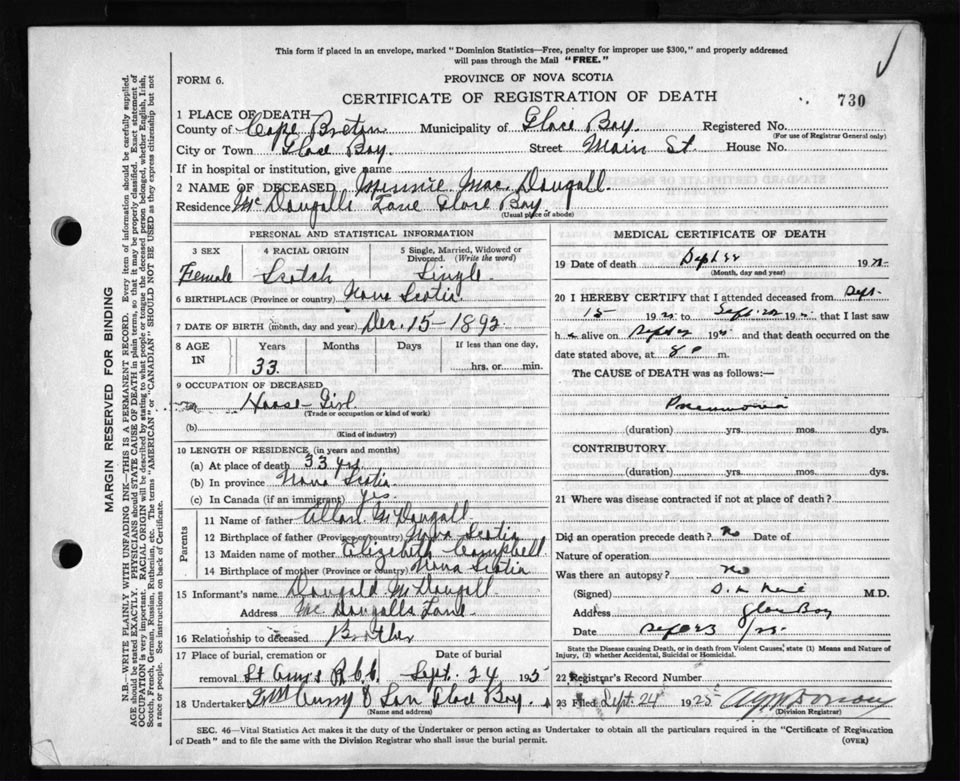 This form if placed in an envelope, marked "Dominion Statistics—Free, penalty for improper use $300," and properly addressed
will pass through the Mail "FREE."
FORM 6.
PROVINCE OF NOVA SCOTIA
CERTIFICATE OF REGISTRATION OF DEATH
730
1 PLACE OF DEATH
County of Cape Breton Municipality of Glace Bay. Registered No.
(For use of Registrar General only)
City or Town Glace Bay. Street Main St. House No.
If in hospital or institution, give name
2 NAME OF DECEASED Minnie Mac Dougall.
Residence McDougalls Lane Glace Bay
(Usual place of abode)
PERSONAL AND STATISTICAL INFORMATION
3 SEX 4 RACIAL ORIGIN 5 Single, Married, Widowed or
Divorced. (Write the word)
Female Scotch Single
6 BIRTHPLACE (Province or country) Nova Scotia
7 DATE OF BIRTH (month, day and year) Dec. 15-1892
8 AGE IN Years Months Days If less than one day,
33 hrs. or min.
9 OCCUPATION OF DECEASED
House-Girl
(Trade or occupation or kind of work)
(b)
(Kind of industry)
10 LENGTH OF RESIDENCE (in years and months)
(a) At place of death 33 yrs
(b) In province Nova Scotia
(c) In Canada (if an immigrant) Yes.
Parents
11 Name of father Allan McDougall
12 Birthplace of father (Province or country) Nova Scotia
13 Maiden name of mother Elizabeth Campbell
14 Birthplace of mother (Province or country) Nova Scotia
15 Informant's name Dougald McDougall
Address McDougalls Lane
16 Relationship to deceased Brother
17 Place of burial, cremation or Date of burial
removal St Anns Sept. 24 1925
18 Undertaker & Son Glace Bay.
(Name and address)
MEDICAL CERTIFICATE OF DEATH
19 Date of death Sept 22 19
(Month, day and year)
20 I HEREBY CERTIFY that I attended deceased from Sept.
15 19 to Sept. 22 19 that I last saw
h alive on Sept 19 and that death occurred on the
date stated above, at 8 m.
The CAUSE of DEATH was as follows:—
Pneumonia
(duration) yrs. mos. dys.
CONTRIBUTORY
(duration) yrs. mos. dys.
21 Where was disease contracted if not at place of death?
Did an operation precede death? No Date of
Nature of operation
Was there an autopsy? No
(Signed) M.D.
Address Glace Bay
Date Sept 23
State the Disease causing Death, or in death from Violent Causes, state (1) Means and Nature of
Injury, (2) whether Accidental, Suicidal or Homicidal.
22 Registrar's Record Number
23 Filed Sept. 24 1925
(Division Registrar)
SEC. 46—Vital Statistics Act makes it the duty of the Undertaker or person acting as Undertaker to obtain all the particulars required in the "Certificate of Registration
of Death" and to file the same with the Division Registrar who shall issue the burial permit. (OVER)
MARGIN RESERVED FOR BINDING
N.B.—WRITE PLAINLY WITH UNFADING INK—THIS IS A PERMANENT RECORD. Every item of information should be carefully supplied.
AGE should be stated EXACTLY. PHYSICIANS should STATE CAUSE OF DEATH in plain terms, so that it may be properly classified. Exact statement of
OCCUPATION is very important. RACIAL ORIGIN will be described by stating to what people or tongue the deceased person belonged, whether English, Irish,
Scotch, French, German, Russian, Ruthenian, etc. The terms "AMERICAN" or "CANADIAN" SHOULD NOT BE USED as they express citizenship but not
a race or people. See instructions on back of Certificate.